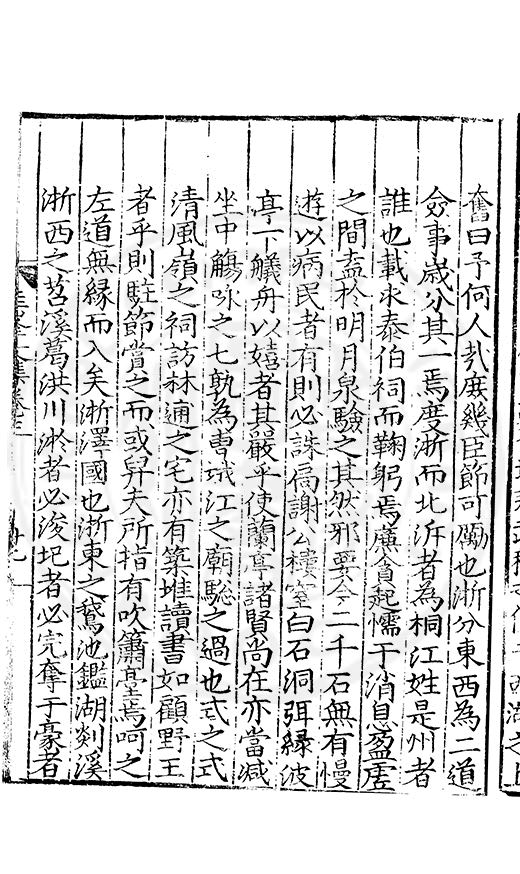 奮曰予何人哉庶幾臣節可勵也浙分東西為二道
僉事歲分其一焉度浙而北泝者為桐江姓是州者
誰也載求泰伯祠而鞠躬焉廉貪起懦于消息盈虛
之間盍於明月泉驗之其然邪要令二千石無有慢
遊以病民者有則必誅焉謝公樓窒白石洞弭緑波
亭下艤舟以嬉者其嚴乎使蘭亭諸賢尚在亦當减
坐中觴咏之七孰為曹娥江之廟驄之過也式之式
清風嶺之祠訪林逋之宅亦有築堆讀書如顧野王
者乎則駐節賞之而或舁夫所指有吹簫臺焉呵之
左道無縁而入矣浙澤國也浙東之鵞池鑑湖剡溪
浙西之苕溪葛洪川淤者必浚圮者必完奪于豪者